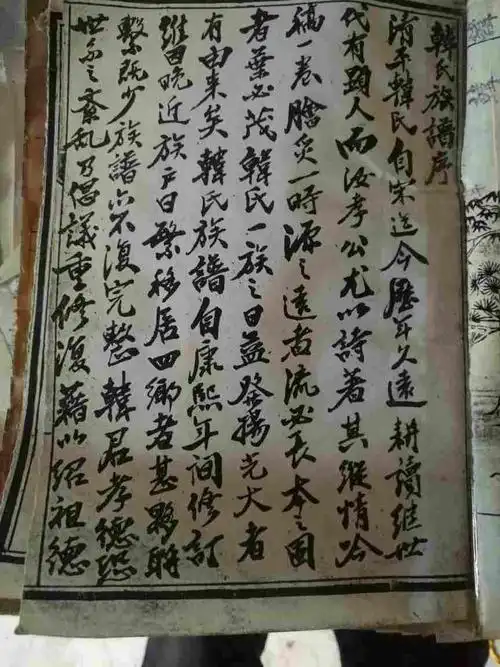 韓氏族譜序
清平韓氏自宋迄今歷年久遠耕讀繼世
代有顯人而汝孝公尤以詩著其縱情吟
稿一卷膾炙一時源之遠者流必長本之固
者葉必茂韓氏一族之日益發揚光大者
有由來矣韓氏族譜自康熙年間修訂
晚近族戶日繁移居四鄉者甚夥聯
繫既少族譜亦不復完整韓君孝德恐
世系之紊亂乃倡議重修復藉以紹祖德